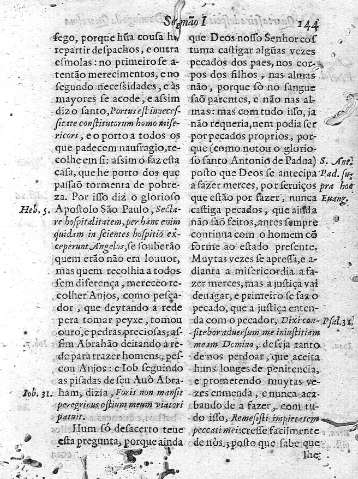 Sermão I 144
sego, porque hũa cousa he
repartir despachos, e outra
esmolas: no primeiro se a-
tentão merecimentos, e no
segundo necessidades, e às
mayores se acode, e assim
diz o santo, Portus est in necess-
sitate constitutorum homo mise-
ricors, e o porto a todos os
que padecem naufragio, re-
colhe em si: assim o faz esta
casa, que he porto dos que
passão tormenta de pobre-
za. Por isso diz o glorioso
Heb. 5. Apostolo São Paulo,
re hospitalitatem, per hanc enim
quidam inscientes hospitio ex-
ceperunt Angelos, se souberão
quem erão não era louvor,
mas quem recolhia a todos
sem diferença, mereceo re-
colher Anjos, como pesca-
dor, que deytando a rede
pera tomar peyxe, tomou
ouro, e pedras preciosas; as-
sim Abrahão deitando a re-
de para trazer homens, pes-
cou Anjos: e Iob seguindo
as pisadas de seu Auò Abra-
Iob. 31. ham, dizia, Foris non mansit
peregrinus ostium meum viatori
patuit.
Hum só desacerto teue
esta pregunta, porque ainda
que Deos nosso Senhor cos-
tuma castigar algũas vezes
peccados dos paes, nos cor-
pos dos filhos, nas almas
não, porque so no sangue
são parentes, e não nas al-
mas: mas com tudo isso, ja
não dequeria, nem podia ser
por peccados proprios, por-
que (como notou o glorio-
so santo Antonio de Padoa) S. Ant.
posto que Deos se antecipa Pad. sup.
a fazer merces, por seruiços pra hoc
que estão por fazer, nunca Euang.
castiga pecados, que ainda
não são feitos, antes sempre
continua com o homem cõ
forme ao estado presente.
Muytas vezes se apressa, e a-
dianta a misericordia a fa-
zer merces, mas a justiça vai
deuagar, e primeiro se faz o
pecado, que a justiça enten-
da com o pecador, Dixi con- Psal. 31.
fitebor aduersum me iniustitiam
meam Domino, deseja tanto
de nos perdoar, que aceita
huns longes de penitencia,
e prometendo muytas ve-
zes emenda, e nunca aca-
bando de a fazer, com tu-
do isso, Remisisti impietatem
peccati mei: cresse facilmente
de nós, posto que sabe que
lhe